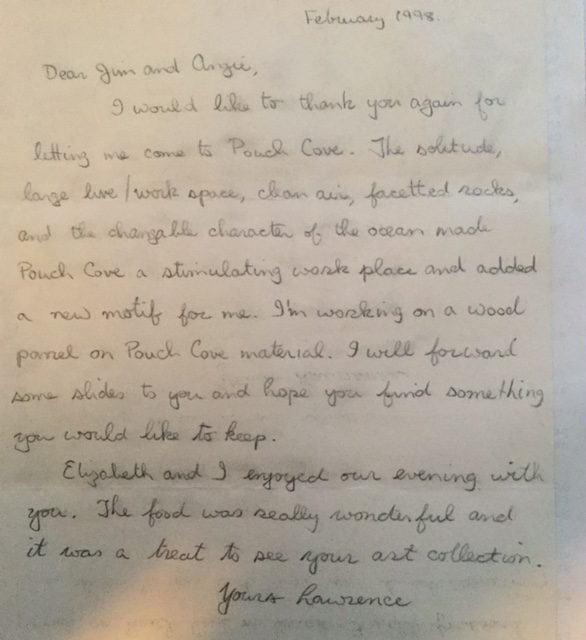 February 1998.
Dear Jim and Angie,
I would like to thank you again for
letting me come to Pouch Cove. The solitude,
large live/work space, clean air, facetted rocks,
and the changable character of the ocean made
Pouch Cove a stimulating work place and added
a new motif for me. I'm working on a wood
panel on Pouch Cove material. I will forward
some slides to you and hope you find something
you would like to keep.
Elizabeth and I enjoyed our evening with
you. The food was really wonderful and
it was a treat to see your art collection.
Yours Lawrence